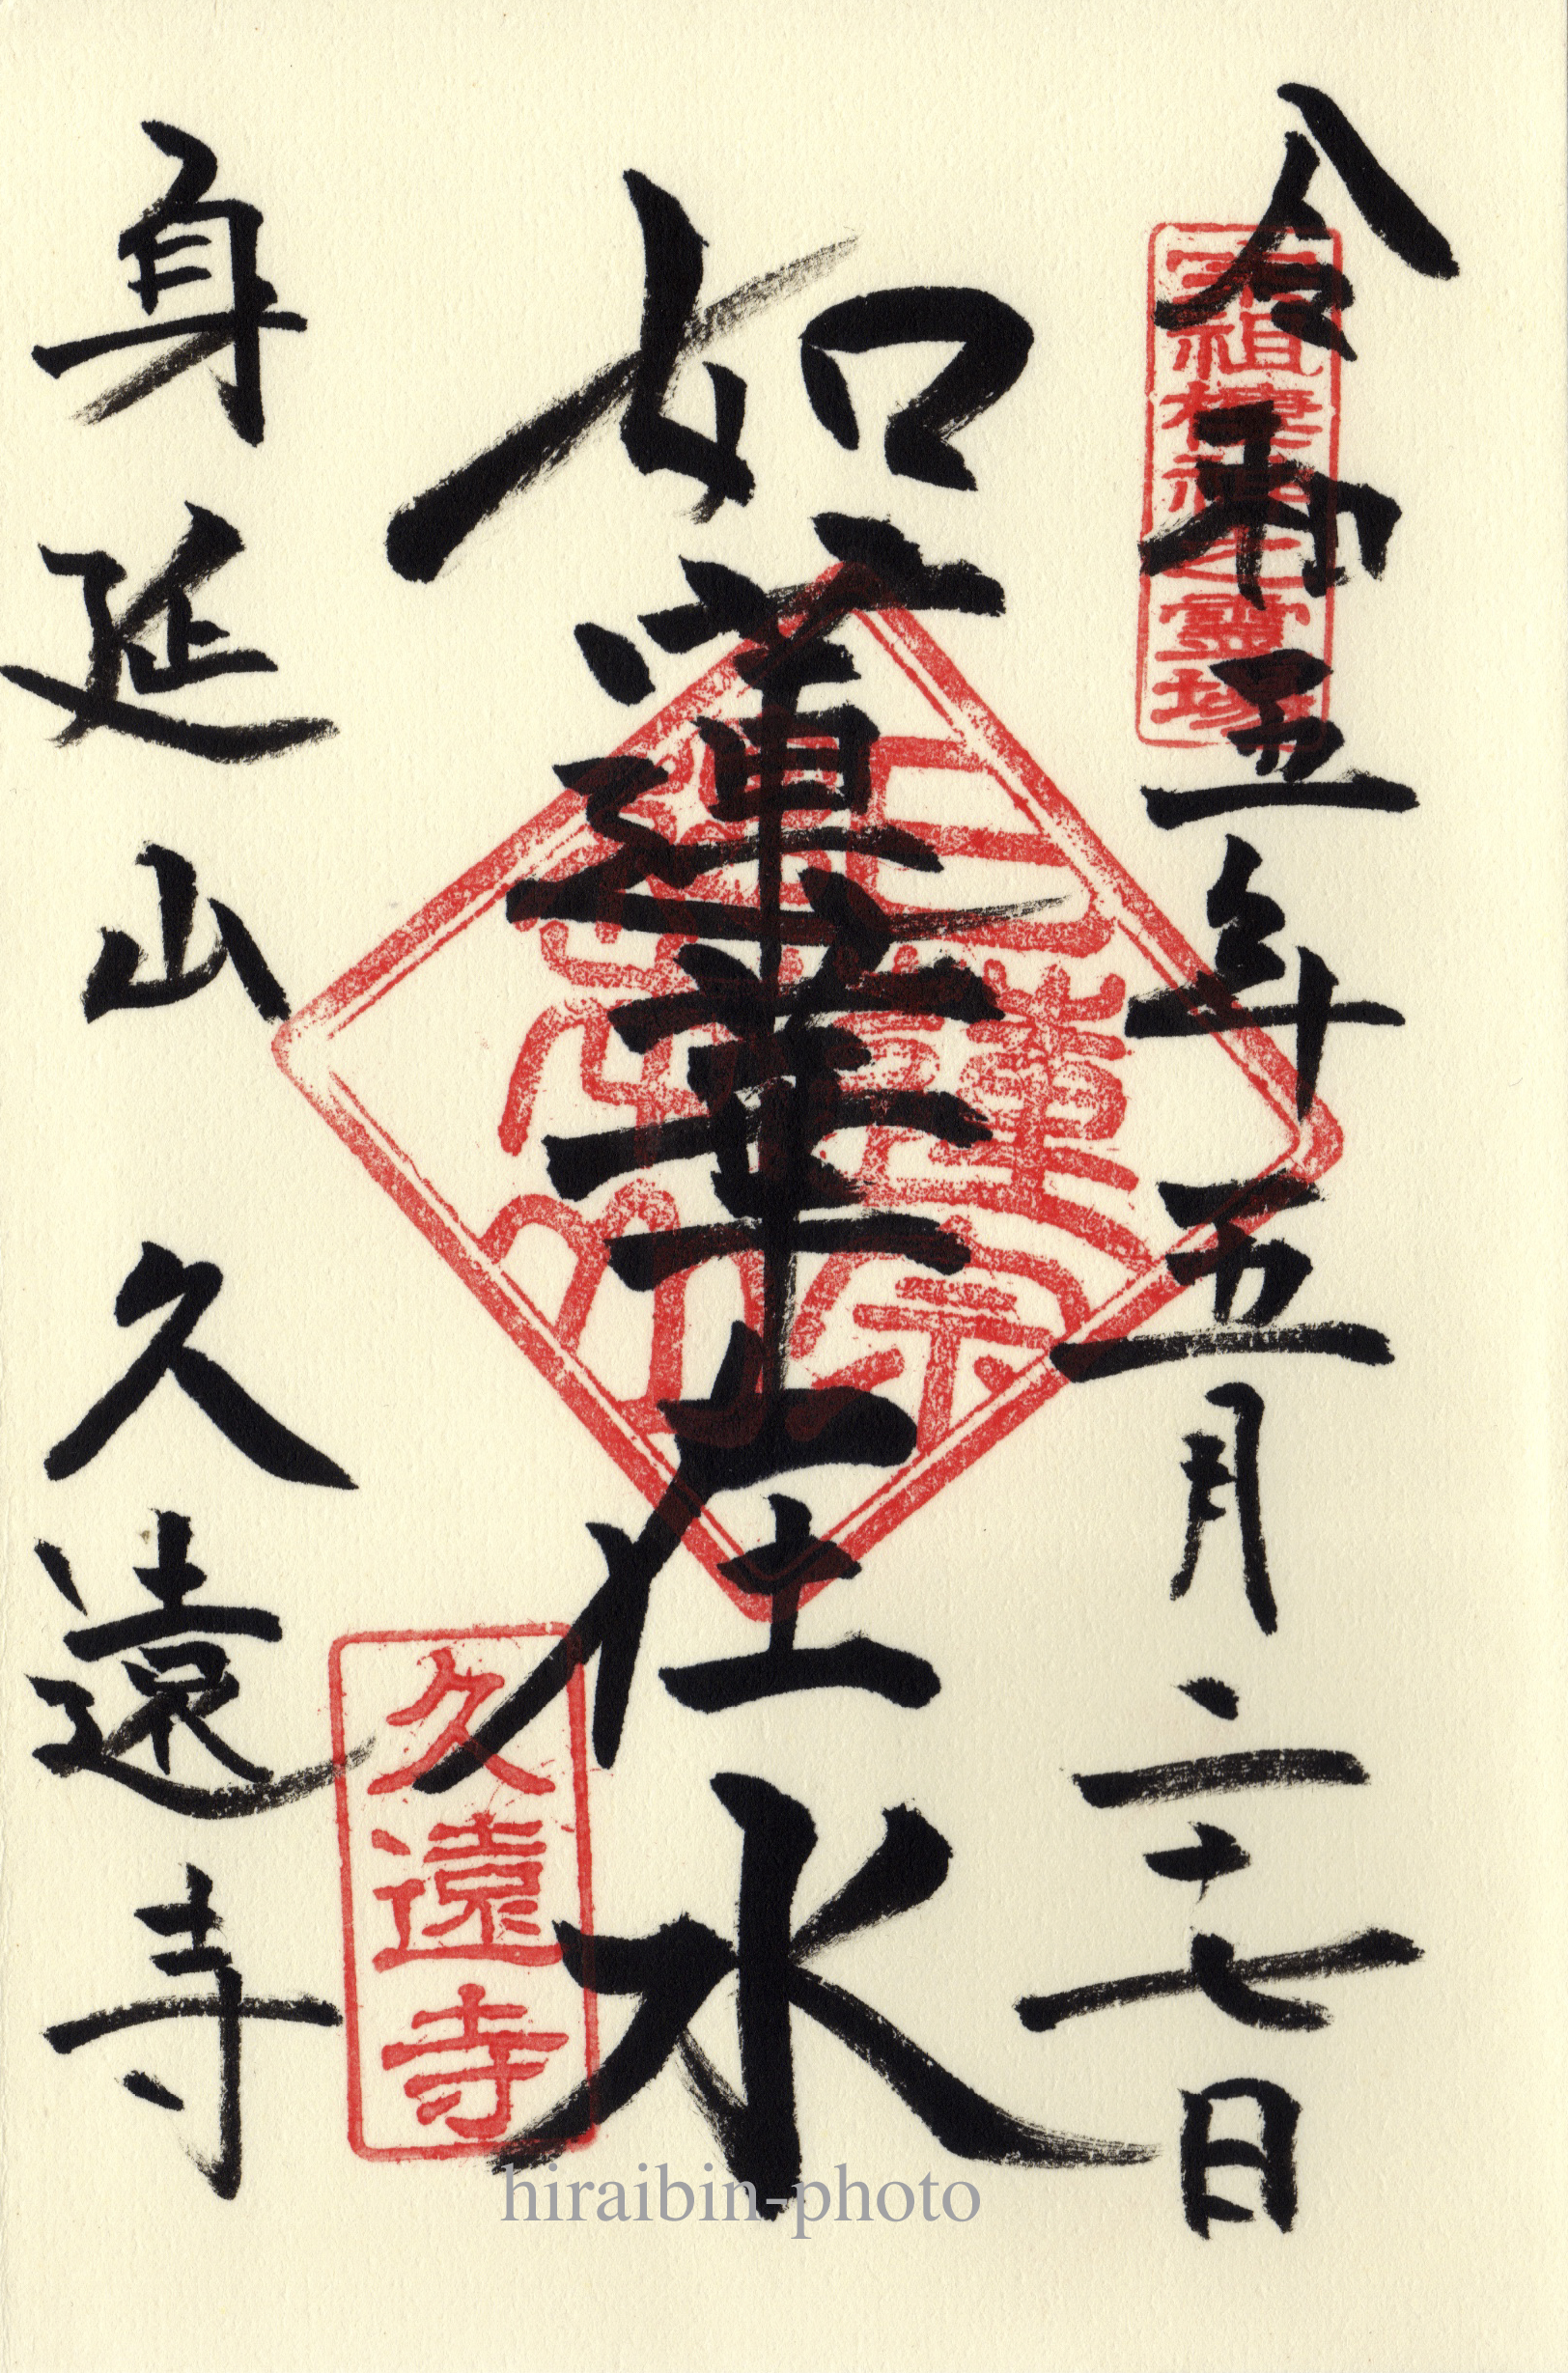 令和五年五月二十七日
宗祖棲神之霊場
如蓮華在水
日蓮宗
身延山 久遠寺
久遠寺
hiraibin-photo